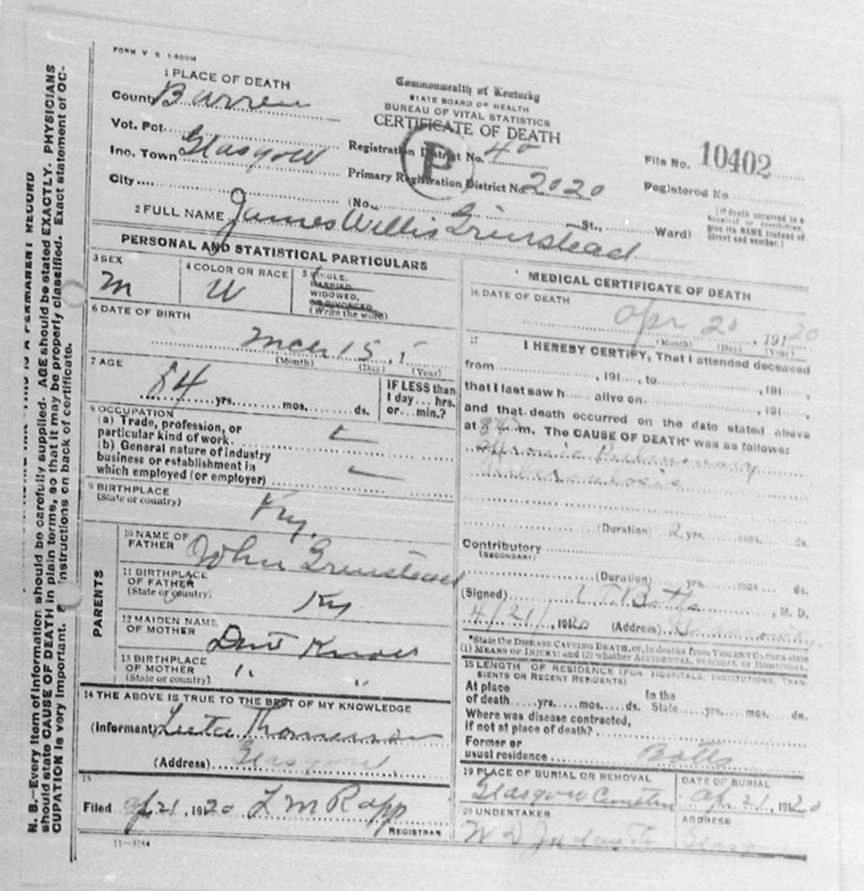 FORM V S 1-500M
1 PLACE OF DEATH
County Barren
Vot. Pct.
Inc. Town Glasgow
City
Commonwealth of Kentucky
STATE BOARD OF HEALTH
BUREAU OF VITAL STATISTICS
CERTIFICATE OF DEATH
P
Registration District No. 40
Primary Registration District No. 2020
(No. St., Ward)
File No. 10402
Registered No
(If death occurred in a
hospital or institution,
give its NAME instead of
street and number.)
2 FULL NAME James Willis Grinstead
N. B.—Every item of information should be carefully supplied. AGE should be stated EXACTLY. PHYSICIANS
should state CAUSE OF DEATH in plain terms, so that it may be properly classified. Exact statement of OC-
CUPATION is very important. instructions on back of certificate.
THIS IS A PERMANENT RECORD
PERSONAL AND STATISTICAL PARTICULARS
3 SEX
M
4 COLOR OR RACE
W
5 SINGLE,
MARRIED,
WIDOWED,
OR DIVORCED
(Write the word)
6 DATE OF BIRTH
15, 1
(Month) (Day) (Year)
7 AGE
84 yrs. mos. ds.
IF LESS than
1 day... hrs.
or... min.?
8 OCCUPATION
(a) Trade, profession, or
particular kind of work
(b) General nature of industry
business or establishment in
which employed (or employer)
9 BIRTHPLACE
(State or country)
Ky.
PARENTS
10 NAME OF
FATHER John Grinstead
11 BIRTHPLACE
OF FATHER
(State or country)
Ky
12 MAIDEN NAME
OF MOTHER Dont Know
13 BIRTHPLACE
OF MOTHER
(State or country)
" "
14 THE ABOVE IS TRUE TO THE BEST OF MY KNOWLEDGE
(Informant) Thomerson
(Address) Glasgow
15
Filed Ap 21, 1920 L M Rapp
REGISTRAR
11—3184
MEDICAL CERTIFICATE OF DEATH
16 DATE OF DEATH
Apr 20, 1920
(Month) (Day) (Year)
17
I HEREBY CERTIFY, That I attended deceased
from , 191 , to , 191
that I last saw h alive on , 191
and that death occurred on the date stated above
at m. The CAUSE OF DEATH* was as follows:
Chronic Pulmonary
Tuberculosis
(Duration) 2 yrs. mos. ds.
Contributory
(SECONDARY)
(Duration) yrs. mos. ds.
(Signed) Botts, M. D.
4/21/, 1920 (Address)
*State the DISEASE CAUSING DEATH, or, in deaths from VIOLENT CAUSES state
(1) MEANS OF INJURY; and (2) whether ACCIDENTAL, SUICIDAL or HOMICIDAL.
18 LENGTH OF RESIDENCE (FOR HOSPITALS, INSTITUTIONS, TRAN-
SIENTS OR RECENT RESIDENTS)
At place In the
of death yrs. mos. ds. State yrs. mos. ds.
Where was disease contracted,
if not at place of death?
Former or
usual residence Botts
19 PLACE OF BURIAL OR REMOVAL
Glasgow Cemetery
DATE OF BURIAL
Apr 21, 1920
20 UNDERTAKER
W D
ADDRESS
Glasgow